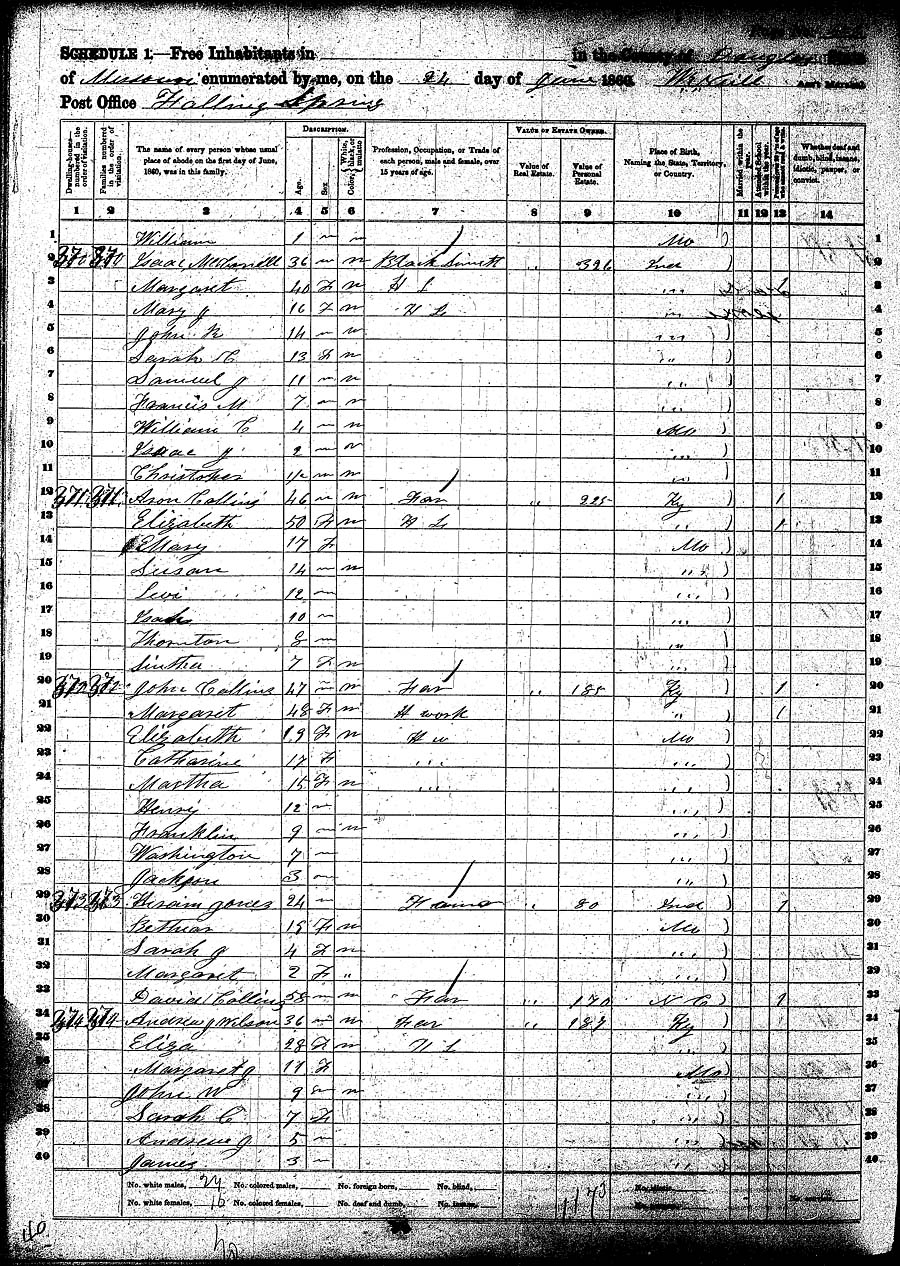 SCHEDULE 1.—Free Inhabitants in in the County of Douglas State
of Missouri enumerated by me, on the 24 day of June 1860. Ass't Marshal
Post Office Falling Springs
DESCRIPTION. VALUE OF ESTATE OWNED.
Dwelling-houses—numbered in the order of visitation. Families numbered in the order of visitation. The name of every person whose usual place of abode on the first day of June, 1860, was in this family. Age. Sex Color, White, black, or mulatto Profession, Occupation, or Trade of each person, male and female, over 15 years of age. Value of Real Estate. Value of Personal Estate. Place of Birth, Naming the State, Territory, or Country. Married within the year. Attended School within the year. Whether deaf and dumb, blind, insane, idiotic, pauper, or convict.
1 2 3 4 5 6 7 8 9 10 11 12 13 14
1 William 1 m m Mo 1
2 370 370 Isaac 36 m m Black Smith " 326 Ind 2
3 Margaret 40 F m H L " 3
4 Mary J 16 F m H L " 4
5 John R 14 m m " 5
6 Sarah C 13 F m " 6
7 Samuel J 11 m m " 7
8 Francis M 7 m m " 8
9 William C 4 m m Mo 9
10 Isaac J 2 m m " 10
11 Christopher m m " 11
12 371 371 Aron Collins 46 m m Far " 225 Ky 1 12
13 Elizabeth 50 F m H L " 1 13
14 Mary 17 F Mo 14
15 Susan 14 m m " 15
16 Levi 12 m " 16
17 10 m " 17
18 Thornton 8 m " 18
19 Sintha 7 F m " 19
20 372 372 John Collins 47 m m Far " 185 Ky 1 20
21 Margaret 48 F m H work " 1 21
22 Elizabeth 19 F m H w Mo 22
23 Catharine 17 F " " 23
24 Martha 15 F m " " 24
25 Henry 12 m " 25
26 Franklin 9 m m " 26
27 Washington 7 m " 27
28 Jackson 3 m " 28
29 373 373 Hiram Jones 24 m " 80 Ind 1 29
30 19 F m Mo 30
31 Sarah J 4 F m " 31
32 Margaret 2 F " " 32
33 David Collins 58 m m Far " 170 N C 1 33
34 374 374 Andrew J Wilson 36 m m Far " 187 Ky 34
35 Eliza 28 F m H L " 35
36 Margaret J 11 F Mo 36
37 John W 9 m m " 37
38 Sarah C 7 F " 38
39 Andrew J 5 m " 39
40 James 3 m " 40
No. white males, 24 No. colored males, No. foreign born, No. blind,
No. white females, 16 No. colored females, No. deaf and dumb, No. insane, 1173
40 40